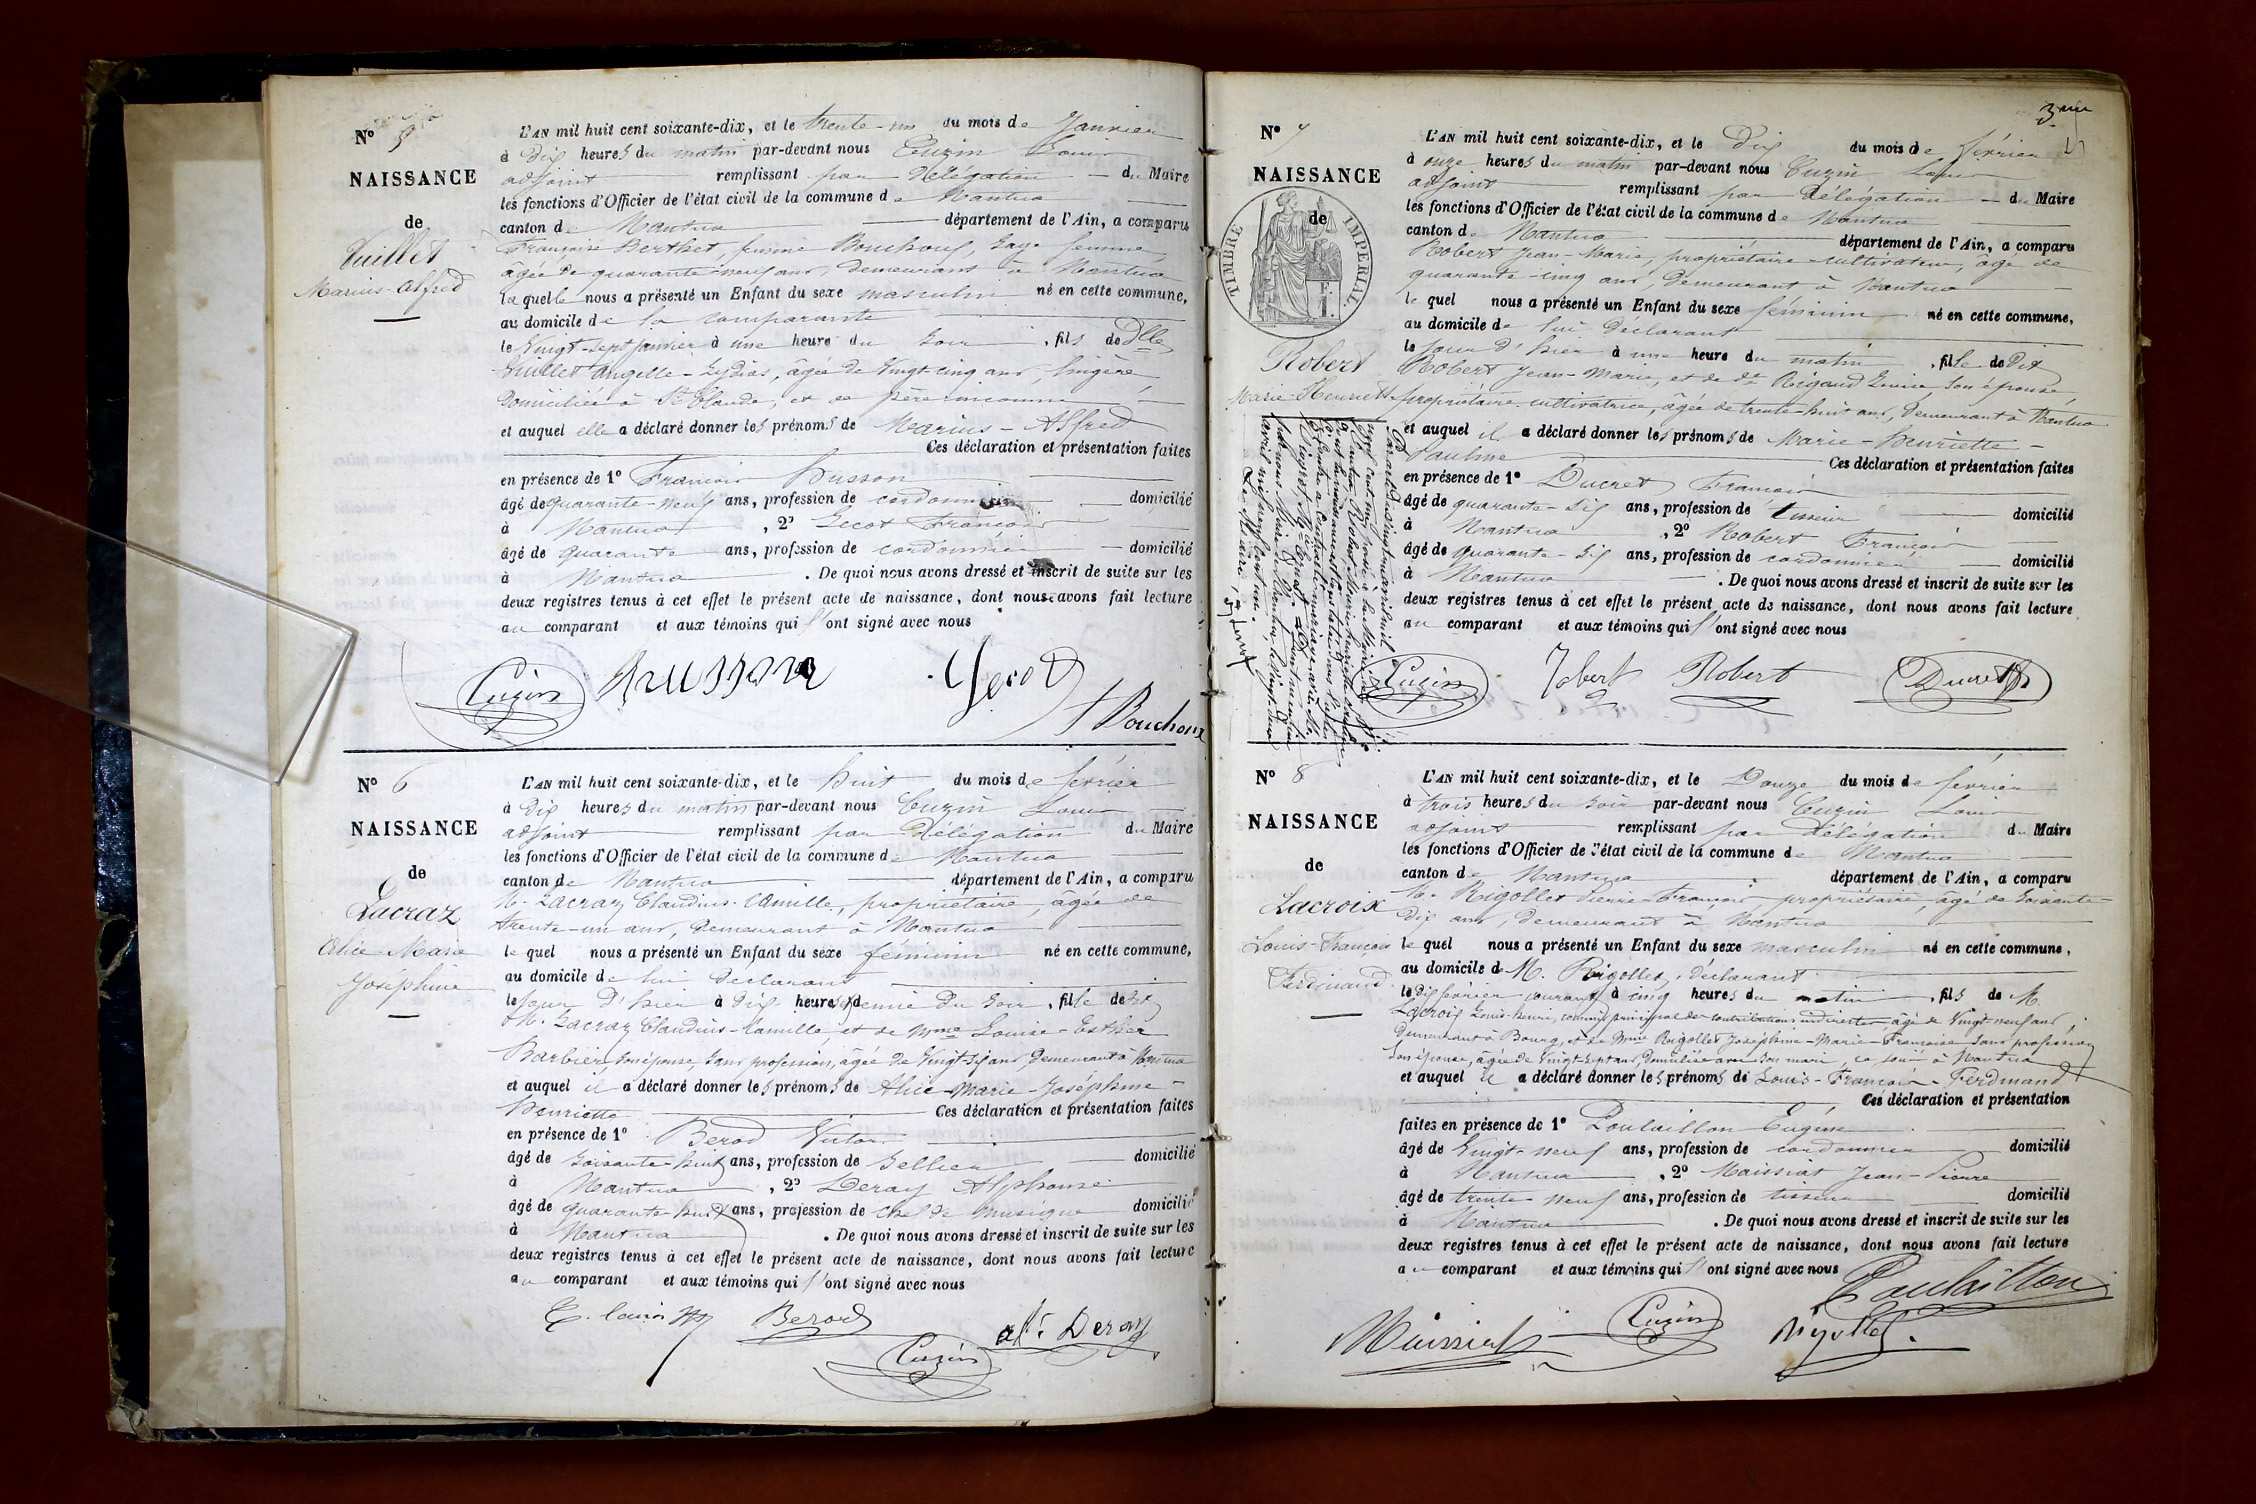 N° 5
NAISSANCE
de
Vuillet
Marius-Alfred
L'AN mil huit cent soixante-dix, et le trente-un du mois de Janvier
à dix heures du matin par-devant nous Cuzin Louis
adjoint remplissant par délégation du Maire
les fonctions d'Officier de l'état civil de la commune de Nantua
canton de Nantua département de l'Ain, a comparu
Françoise Berthet, femme Bouchoux, sage femme,
âgée de quarante-neuf ans, demeurant à Nantua
laquelle nous a présenté un Enfant du sexe masculin né en cette commune,
au domicile de la comparante
le vingt-sept janvier à une heure du soir, fils de Dlle
Vuillet Angelle-Lydias, âgée de vingt-cinq ans, lingère
domiciliée à St Claude, et de père inconnu
et auquel elle a déclaré donner les prénoms de Marius-Alfred
Ces déclaration et présentation faites
en présence de 1° François Husson
âgé de quarante-neuf ans, profession de cordonnier domicilié
à Nantua, 2° Gecot François
âgé de quarante ans, profession de cordonnier domicilié
à Nantua. De quoi nous avons dressé et inscrit de suite sur les
deux registres tenus à cet effet le présent acte de naissance, dont nous avons fait lecture
au comparant et aux témoins qui l'ont signé avec nous
Cuzin
Gecot
f Bouchoux
N° 6
NAISSANCE
de
Lacraz
Alice-Marie
Joséphine
L'AN mil huit cent soixante-dix, et le huit du mois de février
à dix heures du matin par-devant nous Cuzin Louis
adjoint remplissant par délégation du Maire
les fonctions d'Officier de l'état civil de la commune de Nantua
canton de Nantua département de l'Ain, a comparu
M. Lacraz Claudius-Camille, propriétaire, âgée de
trente-un ans, demeurant à Nantua
le quel nous a présenté un Enfant du sexe féminin né en cette commune,
au domicile de lui déclarant
le jour d'hier à dix heures demie du soir, fille de
M. Lacraz Claudius-Camille, et de Mme Louise-Esther
Barbier, son épouse, sans profession, âgée de vingt-six ans, demeurant à Nantua
et auquel il a déclaré donner les prénoms de Alice-Marie-Joséphine-
Henriette Ces déclaration et présentation faites
en présence de 1° Berod Victor
âgé de soixante-huit ans, profession de sellier domicilié
à Nantua, 2° Deray Alphonse
âgé de quarante-huit ans, profession de chef de musique domicilié
à Nantua. De quoi nous avons dressé et inscrit de suite sur les
deux registres tenus à cet effet le présent acte de naissance, dont nous avons fait lecture
au comparant et aux témoins qui l'ont signé avec nous
Berod
Cuzin
Deray
3
N° 7
NAISSANCE
de
TIMBRE IMPERIAL
Robert
Marie-Henriette
L'AN mil huit cent soixante-dix, et le dix du mois de février
à onze heures du matin par-devant nous Cuzin Louis
adjoint remplissant par délégation du Maire
les fonctions d'Officier de l'état civil de la commune de Nantua
canton de Nantua département de l'Ain, a comparu
Robert Jean-Marie, propriétaire-cultivateur, âgé de
quarante-cinq ans, demeurant à Nantua
le quel nous a présenté un Enfant du sexe féminin né en cette commune,
au domicile de lui déclarant
le jour d'hier à une heure du matin, fille de dit
Robert Jean-Marie, et de de Rigaud Louise son épouse,
propriétaire-cultivatrice, âgée de trente-huit ans, demeurant à Nantua
et auquel il a déclaré donner les prénoms de Marie-Henriette-
Pauline Ces déclaration et présentation faites
en présence de 1° Ducret François
âgé de quarante-six ans, profession de tisseur domicilié
à Nantua, 2° Robert François
âgé de quarante-six ans, profession de cordonnier domicilié
à Nantua. De quoi nous avons dressé et inscrit de suite sur les
deux registres tenus à cet effet le présent acte de naissance, dont nous avons fait lecture
au comparant et aux témoins qui l'ont signé avec nous
Cuzin
Robert
Robert
Ducret
N° 8
NAISSANCE
de
Lacroix
Louis-François
Ferdinand
L'AN mil huit cent soixante-dix, et le Douze du mois de février
à trois heures du soir par-devant nous Cuzin Louis
adjoint remplissant par délégation du Maire
les fonctions d'Officier de l'état civil de la commune de Nantua
canton de Nantua département de l'Ain, a comparu
M. Rigollet Pierre-François, propriétaire, âgé de soixante-
dix ans, demeurant à Nantua
le quel nous a présenté un Enfant du sexe masculin né en cette commune,
au domicile de M. Rigollet, déclarant
le dix février courant à cinq heures du matin, fils de M.
Lacroix Louis-Henri, commis principal des contributions indirectes, âgé de vingt-neuf ans,
demeurant à Bourg, et de Mme Rigollet Joséphine-Marie-Françoise sans profession,
son épouse, âgée de vingt-sept ans domiciliée avec son mari, à Nantua
et auquel il a déclaré donner les prénoms de Louis-François-Ferdinand
Ces déclaration et présentation
faites en présence de 1° Poulaillon Eugène
âgé de vingt-neuf ans, profession de cordonnier domicilié
à Nantua, 2° Maissiat Jean-Pierre
âgé de trente-neuf ans, profession de tisseur domicilié
à Nantua. De quoi nous avons dressé et inscrit de suite sur les
deux registres tenus à cet effet le présent acte de naissance, dont nous avons fait lecture
au comparant et aux témoins qui l'ont signé avec nous
Poulaillon
Maissiat
Cuzin
Rigollet